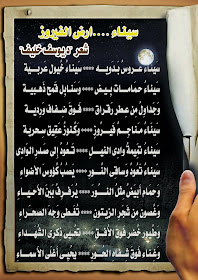 سيناء ....ارض الفيروز
شعر "د/يوسف خليف"
سيناء عروس بدويه **** سيناء خيول عربية
سيناء حمامات بيض **** وسنابل قمح ذهبية
وجداول من عطر رقراق **** فوق ضفاف وردية
سيناء مناجم فيروز **** وكنوز عقيق سحرية
سيناء يتيمة وادى النيل **** تعود إلى صدر الوادى
سيناء تعود وساقى النور **** يصب كئوس الأضواء
وحمام أبيض مثل النور **** يرفرف بين الأحياء
وغصون من شجر الزيتون **** تغطى وجه الصحراء
وطيور خضر فوق الأفق **** تحيى ذكرى الشهداء
وغناء فوق شفاه الحور **** يحيى أغلى الأسماء